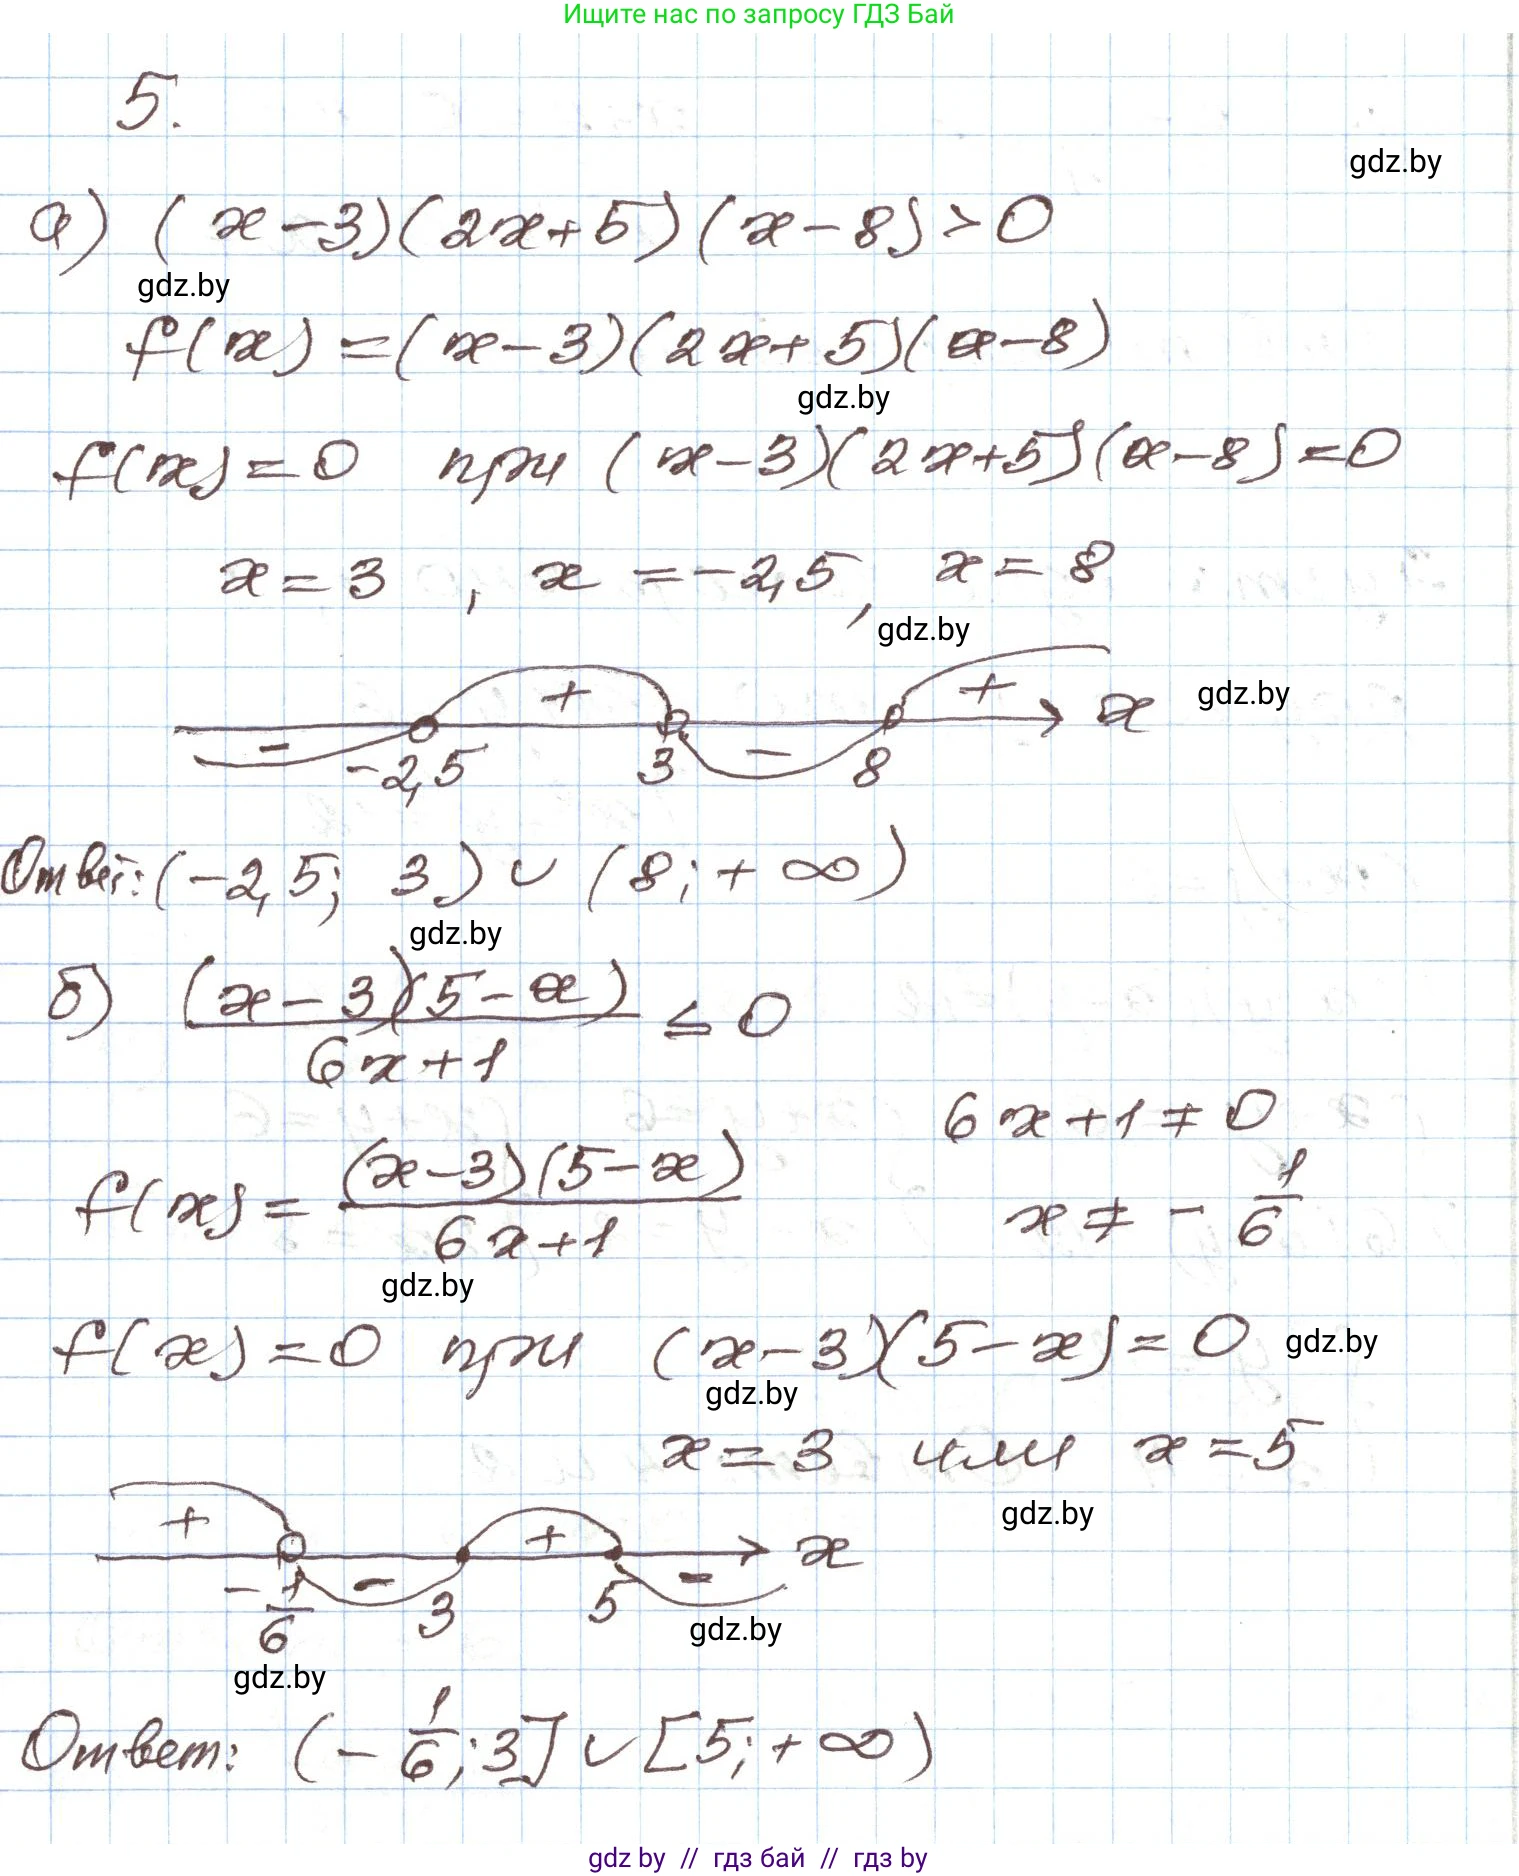 Ищите нас по запросу ГДЗ Бай
5.
gdz.by
а) (x-3)(2x+5)(x-8)>0
gdz.by
f(x)=(x-3)(2x+5)(x-8)
gdz.by
f(x)=0 при (x-3)(2x+5)(x-8)=0
x=3, x=-2,5, x=8
gdz.by
+ + x gdz.by
- -2,5 3 - 8
Ответ: (-2,5; 3) ∪ (8; +∞)
gdz.by
б) (x-3)(5-x)/6x+1 ≤ 0
6x+1≠0
f(x)=(x-3)(5-x)/6x+1
x≠-1/6
gdz.by
f(x)=0 при (x-3)(5-x)=0 gdz.by
gdz.by
x=3 или x=5
gdz.by
+ + x
-1/6 - 3 5 -
gdz.by
gdz.by
Ответ: (-1/6; 3] ∪ [5; +∞)
gdz.by // гдз бай // гдз by